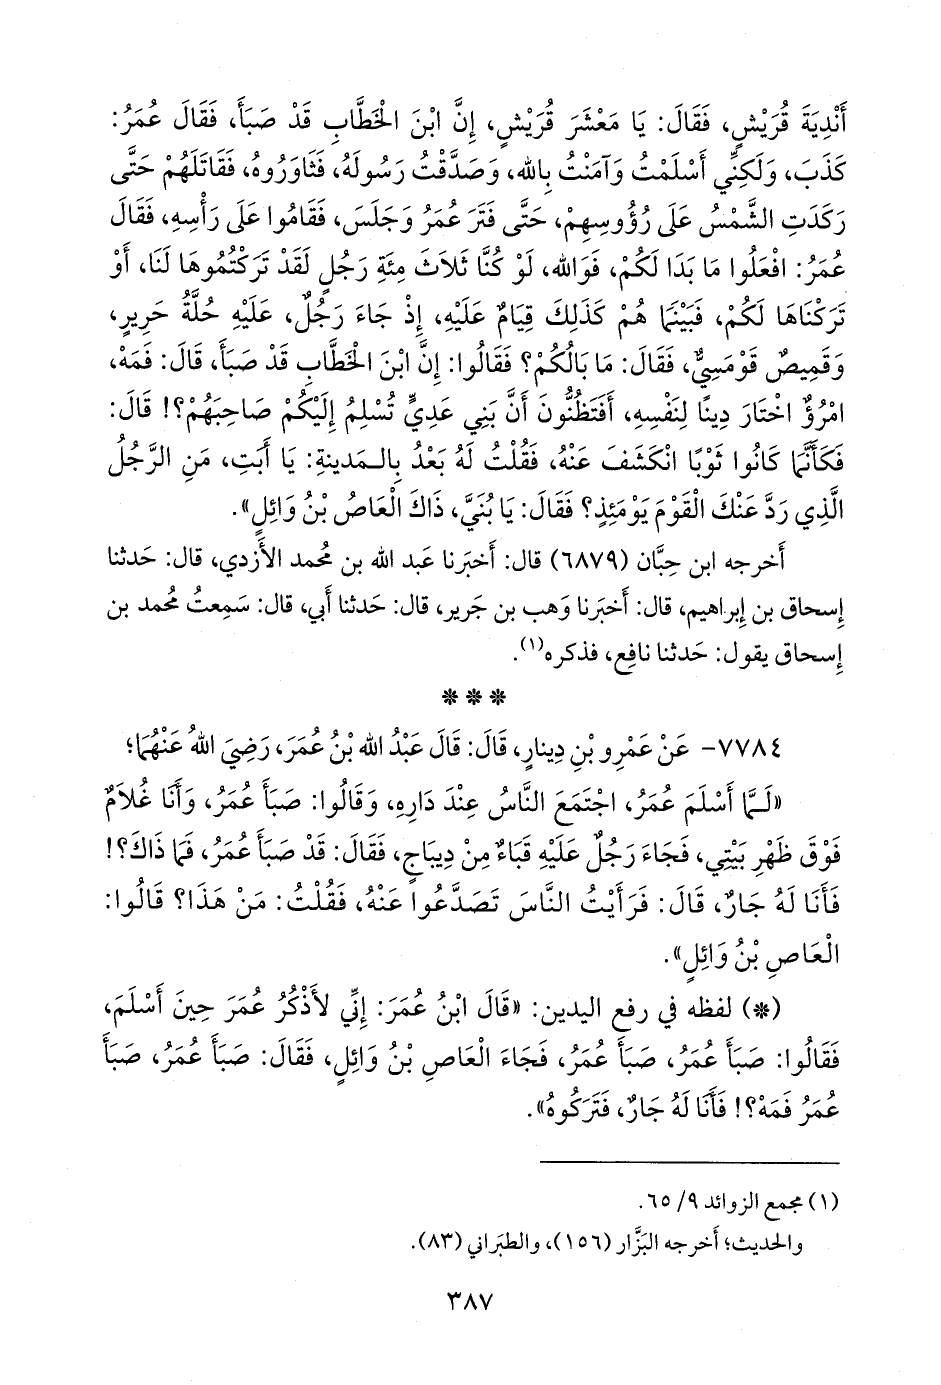 أَنْدِيَةَ قُرَيْشٍ، فَقَالَ: يَا مَعْشَرَ قُرَيْشٍ، إِنَّ ابْنَ الْخَطَّابِ قَدْ صَبَأَ، فَقَالَ عُمَرُ:
كَذَبَ، وَلَكِنِّي أَسْلَمْتُ وَآمَنْتُ بِالله، وَصَدَّقْتُ رَسُولَهُ، فَثَاوَرُوهُ، فَقَاتَلَهُمْ حَتَّى
رَكَدَتِ الشَّمْسُ عَلَى رُؤُوسِهِمْ، حَتَّى فَتَرَ عُمَرُ وَجَلَسَ، فَقَامُوا عَلَى رَأْسِهِ، فَقَالَ
عُمَرُ: افْعَلُوا مَا بَدَا لَكُمْ، فَوَالله، لَوْ كُنَّا ثَلاَثَ مِئَةِ رَجُلٍ لَقَدْ تَرَكْتُمُوهَا لَنَا، أَوْ
تَرَكْنَاهَا لَكُمْ، فَبَيْنَمَا هُمْ كَذَلِكَ قِيَامٌ عَلَيْهِ، إِذْ جَاءَ رَجُلٌ، عَلَيْهِ حُلَّةُ حَرِيرٍ،
وَقَمِيصٌ قَوْمَسِيٌّ، فَقَالَ: مَا بَالُكُمْ؟ فَقَالُوا: إِنَّ ابْنَ الْخَطَّابِ قَدْ صَبَأَ، قَالَ: فَمَهْ،
امْرُؤٌ اخْتَارَ دِينًا لِنَفْسِهِ، أَفَتَظُنُّونَ أَنَّ بَنِي عَدِيٍّ تُسْلِمُ إِلَيْكُمْ صَاحِبَهُمْ؟! قَالَ:
فَكَأَنَّمَا كَانُوا ثَوْبًا انْكَشَفَ عَنْهُ، فَقُلْتُ لَهُ بَعْدُ بِالـمَدينةِ: يَا أَبَتِ، مَنِ الرَّجُلُ
الَّذِي رَدَّ عَنْكَ الْقَوْمَ يَوْمَئِذٍ؟ فَقَالَ: يَا بُنَيَّ، ذَاكَ الْعَاصُ بْنُ وَائِلٍ».
أخرجه ابن حِبَّان (٦٨٧٩) قال: أَخبَرنا عَبد الله بن محمد الأَزدي، قال: حَدثنا
إِسحاق بن إِبراهيم، قال: أَخبَرنا وَهب بن جَرير، قال: حَدثنا أَبي، قال: سَمِعتُ محمد بن
إِسحاق يقول: حَدثنا نافِع، فذكره(١).
* * *
٧٧٨٤- عَنْ عَمْرِو بْنِ دِينارٍ، قَالَ: قَالَ عَبْدُ الله بْنُ عُمَرَ، رَضِيَ اللهُ عَنْهُمَا؛
«لَـمَّا أَسْلَمَ عُمَرُ، اجْتَمَعَ النَّاسُ عِنْدَ دَارِهِ، وَقَالُوا: صَبَأَ عُمَرُ، وَأَنَا غُلاَمٌ
فَوْقَ ظَهْرِ بَيْتِي، فَجَاءَ رَجُلٌ عَلَيْهِ قَبَاءٌ مِنْ دِيبَاجٍ، فَقَالَ: قَدْ صَبَأَ عُمَرُ، فَمَا ذَاكَ؟!
فَأَنَا لَهُ جَارٌ، قَالَ: فَرَأَيْتُ النَّاسَ تَصَدَّعُوا عَنْهُ، فَقُلْتُ: مَنْ هَذَا؟ قَالُوا:
الْعَاصِ بْنُ وَائِلٍ».
(*) لفظه في رفع اليدين: «قَالَ ابْنُ عُمَرَ: إِنِّي لأَذْكُرُ عُمَرَ حِينَ أَسْلَمَ،
فَقَالُوا: صَبَأَ عُمَرُ، صَبَأَ عُمَرُ، فَجَاءَ الْعَاصِ بْنُ وَائِلٍ، فَقَالَ: صَبَأَ عُمَرُ، صَبَأَ
عُمَرُ فَمَهْ؟! فَأَنَا لَهُ جَارٌ، فَتَرَكُوهُ».
(١) مجمع الزوائد ٩/ ٦٥.
والحديث؛ أخرجه البَزَّار (١٥٦)، والطبَراني (٨٣).
٣٨٧